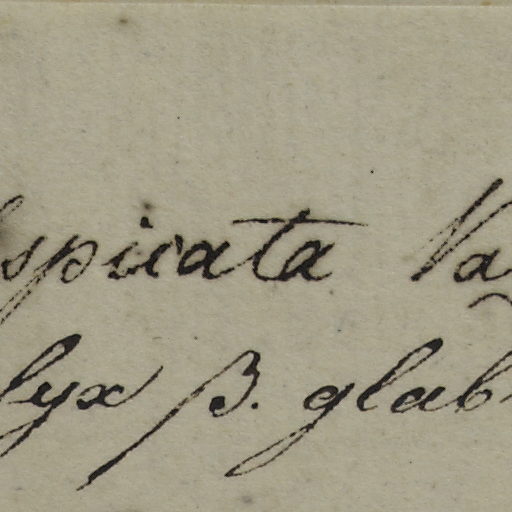 spicata Va
lyx β. glab